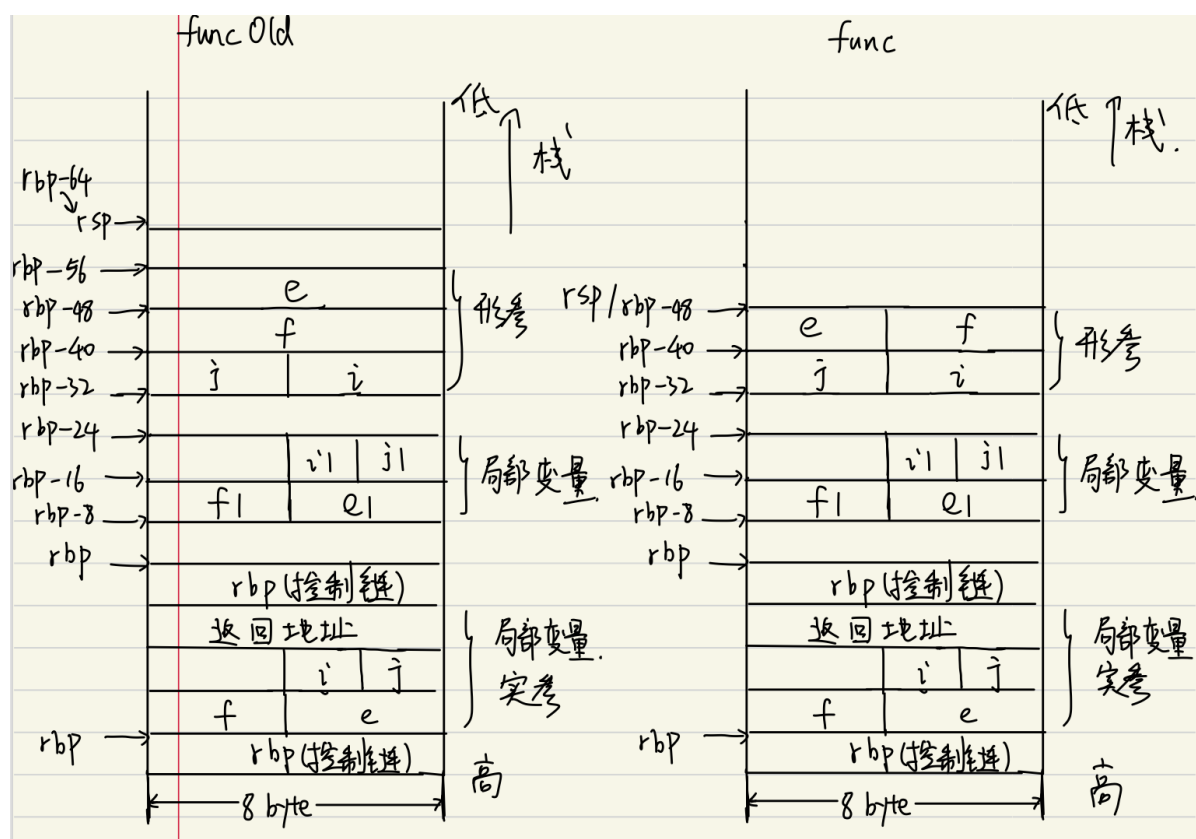 func Old
func
低
栈
低
栈.
rbp-64
rsp
rbp-56
e
rbp-48
f
rbp-40
j i
rbp-32
形参
rbp-24
i1 j1
rbp-16
f1 e1
rbp-8
局部变量.
rbp
rbp(控制链)
返回地址
i j
f e
局部变量.
实参
rbp
rbp(控制链)
高
8 byte
rsp/rbp-48
e f
rbp-40
j i
rbp-32
形参
rbp-24
i1 j1
rbp-16
f1 e1
rbp-8
局部变量.
rbp
rbp(控制链)
返回地址
i j
f e
局部变量
实参
rbp
rbp(控制链)
高
8 byte